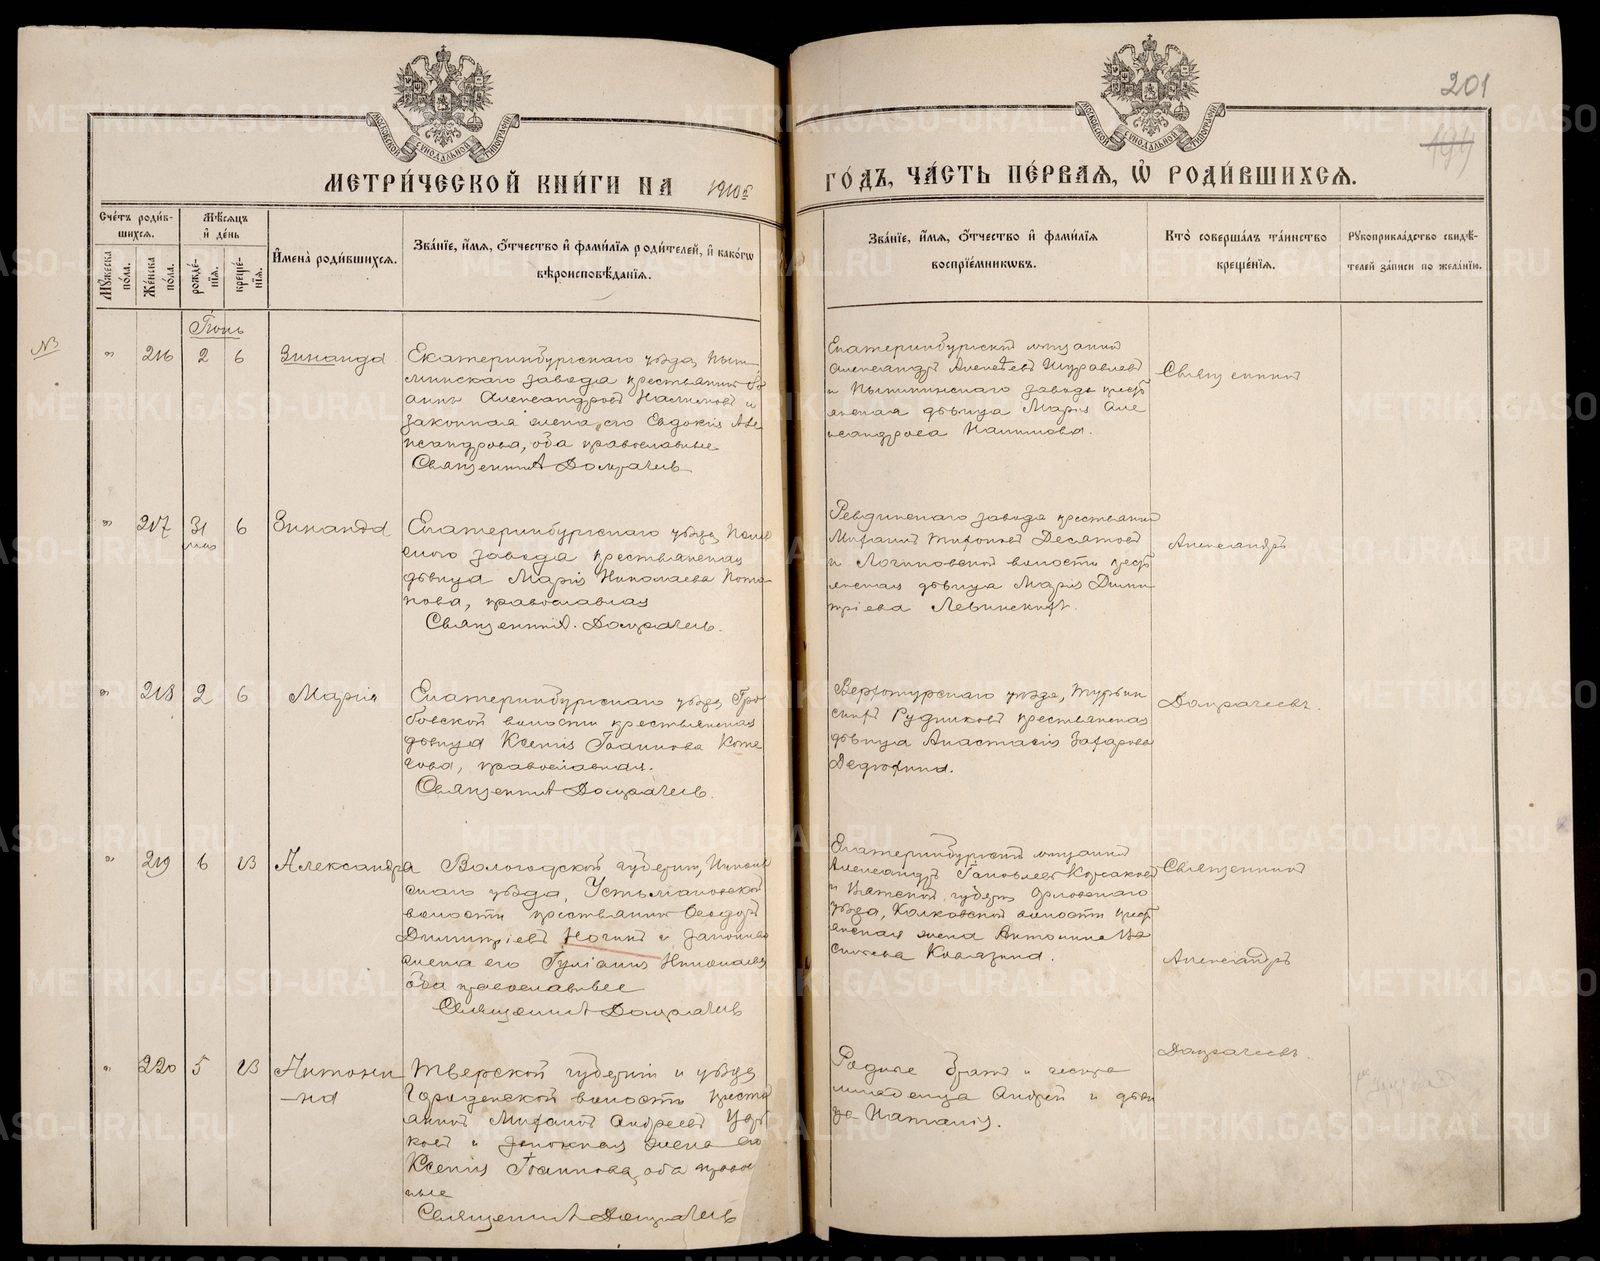 201
194
МЕТРИ́ЧЕСКОЙ КНИ́ГИ НА 1910й
ГО́ДЪ, ЧА́СТЬ ПЕ́РВАЯ, Ѡ РОДИ́ВШИХСЯ.
МОСКОВСКОЙ СѴНОДАЛЬНОЙ ТИПОГРАФІИ
МОСКОВСКОЙ СѴНОДАЛЬНОЙ ТИПОГРАФІИ
Сче́тъ роди́вшихся.
Му́жеска по́ла.
Же́нска по́ла.
Мѣ́сяцъ и҆ де́нь
рожде́нїя.
креще́нїя.
И҆мена̀ роди́вшихся.
Зва́нїе, и҆́мя, ѻ҆́тчество и҆ фами́лїя роди́телей, и҆ како́гѡ
вѣроисповѣ́данїя.
Зва́нїе, и҆́мя, ѻ҆́тчество и҆ фами́лїя
воспрїе́мникѡвъ.
Кто̀ соверша́лъ та́инство
креще́нїя.
Рꙋкоприкла́дство свидѣ́-
телей за́писи по жела́нїю.
Іюнь
№
" 216 2 6 Зинаида
Екатеринбургскаго уѣзда, Пыш-
минскаго завода крестьянинъ Іо
аннъ Александровъ Налимовъ и
законная жена его Евдокія Але
ксандрова, оба православные
Священникъ Домрачевъ
Екатеринбургскій мѣщанинъ
Александръ Алексѣевъ Журавлевъ
и Пышминскаго завода крестъ
янская дѣвица Марія Але
ксандрова Налимова.
Священникъ
" 217 31 мая 6 Зинаида
Екатеринбургскаго уѣзда, Полев
скаго завода крестьянская
дѣвица Марія Николаева Пота
пова, православная
Священникъ Домрачевъ.
Ревдинскаго завода крестьянинъ
Михаилъ Десятовъ
и Логиновской волости крестъ
янская дѣвица Марія Дими
тріева
Александръ
" 218 2 6 Марія
Екатеринбургскаго уѣзда Гро
бовской волости крестьянская
дѣвица Ксенія Іоаннова
православная.
Священникъ Домрачевъ.
Верхотурскаго уѣзда, Турьин
скихъ Рудниковъ крестьянская
дѣвица Анастасія Захарова
Дедюхина.
Домрачевъ.
" 219 6 13 Александра
Вологодской губерніи, Николь
скаго уѣзда,
волости крестьянинъ Ѳеодоръ
Димитріевъ Ногинъ и законная
жена его Іуліанія Николаева
оба православные
Священникъ Домрачевъ
Екатеринбургскій мѣщанинъ
Александръ Іаковлевъ Корсаковъ
и Вятской губерніи Орловскаго
уѣзда, волости крестъ
янская жена Антонина Ва
сильева
Священникъ
Александръ
" 220 5 13 Антони
-на
Тверской губерніи и уѣзда
Городенской волости кресть
янинъ Михаилъ Андреевъ
и законная жена его
Ксенія Іоаннова, оба право
ные
Священникъ Домрачевъ
Родные братъ и сестра
младенца Андрей и дѣви
ца Наталія.
Домрачевъ.
METRIKI.GASO-URAL.RU